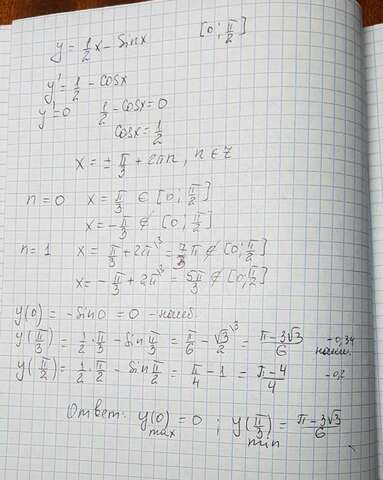 y = 1/2 x - sinx [0; π/2]
y' = 1/2 - cosx
y' = 0 1/2 - cosx = 0
cosx = 1/2
x = ± π/3 + 2πn, n ∈ Z
n = 0 x = π/3 ∈ [0; π/2]
x = - π/3 ∉ [0; π/2]
n = 1 x = π/3 + 2π^\3 = 7/3 π ∉ [0; π/2]
x = - π/3 + 2π^\3 = 5π/3 ∉ [0; π/2]
y(0) = -sin0 = 0 - наиб.
y(π/3) = 1/2 · π/3 - sin π/3 = π/6 - √3/2^\3 = π-3√3/6 -0,34 наим.
y(π/2) = 1/2 · π/2 - sin π/2 = π/4 - 1 = π-4/4 -0,2
Ответ: y(0) max = 0 ; y(π/3) min = π-3√3/6